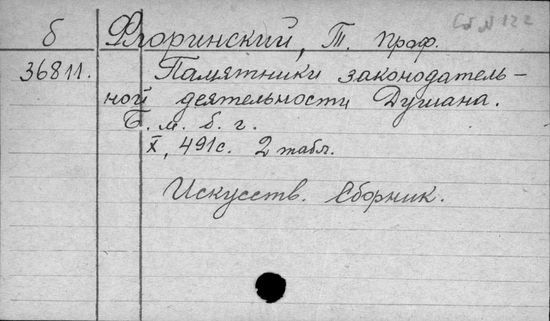 Сб N 122
б Флоринский, Т. проф.
36811. Памятники законодатель-
ной деятельности Душана.
Б. м. б. г.
X, 491с. 2 табл.
Искусств. Сборник.